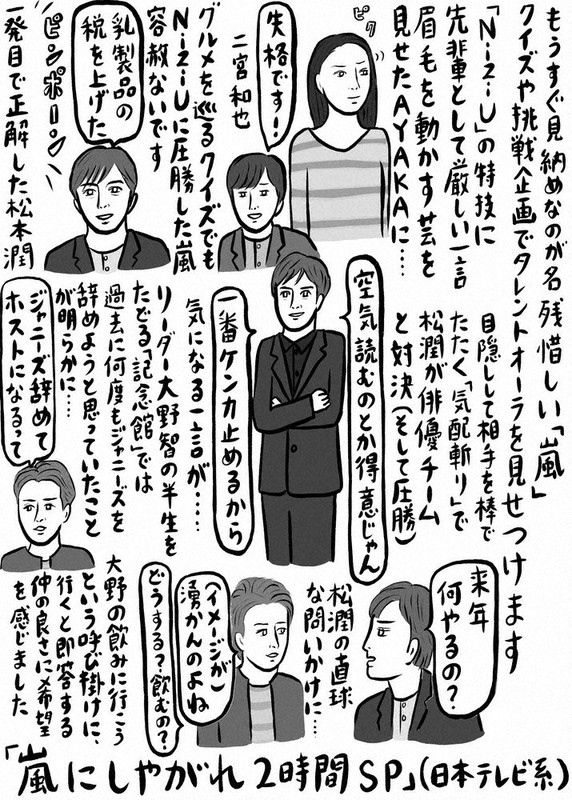 もうすぐ見納めなのが名残惜しい「嵐」
クイズや挑戦企画でタレントオーラを見せつけます
「NiziU」の特技に
先輩として厳しい一言
眉毛を動かす芸を
見せたAYAKAに…
ピク
失格です!
二宮和也
グルメを巡るクイズでも
NiziUに圧勝した嵐
容赦ないです
乳製品の
税を上げた
ピンポーン
一発目で正解した松本潤
目隠しして相手を棒で
たたく「気配斬り」で
松潤が俳優チーム
と対決(そして圧勝)
空気読むのとか得意じゃん
一番ケンカ止めるから
気になる一言が……
リーダー大野智の半生を
たどる「記念館」では
過去に何度もジャニーズを
辞めようと思っていたこと
が明らかに…
ジャニーズ辞めて
ホストになるって
来年
何やるの?
松潤の直球
な問いかけに…
(イメージが)
湧かんのよね
どうする?飲むの?
大野の飲みに行こう
という呼び掛けに、
行くと即答する
仲の良さに希望
を感じました
「嵐にしやがれ2時間SP」(日本テレビ系)